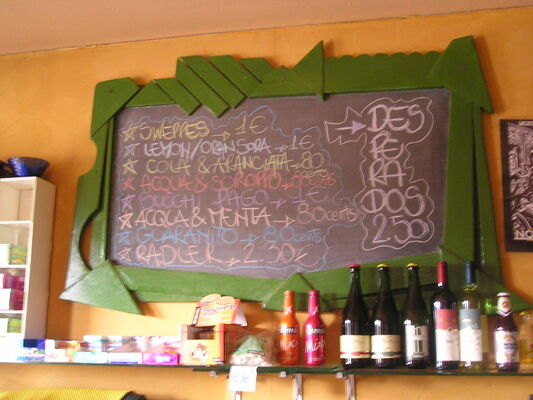 SWEPPES → 1 €
LEMON/ORAN SODA → 1 €
COLA & ARANCIATA → 80 cents
ACQUA & SCIROPPO → 80 cents
SUCCHI PAGO → 1 €
ACQUA & MENTA → 80 cents
GUARANITO → 80 cents
RADLER → 2.30 €
→ DES
PE
RA
DOS
2.50